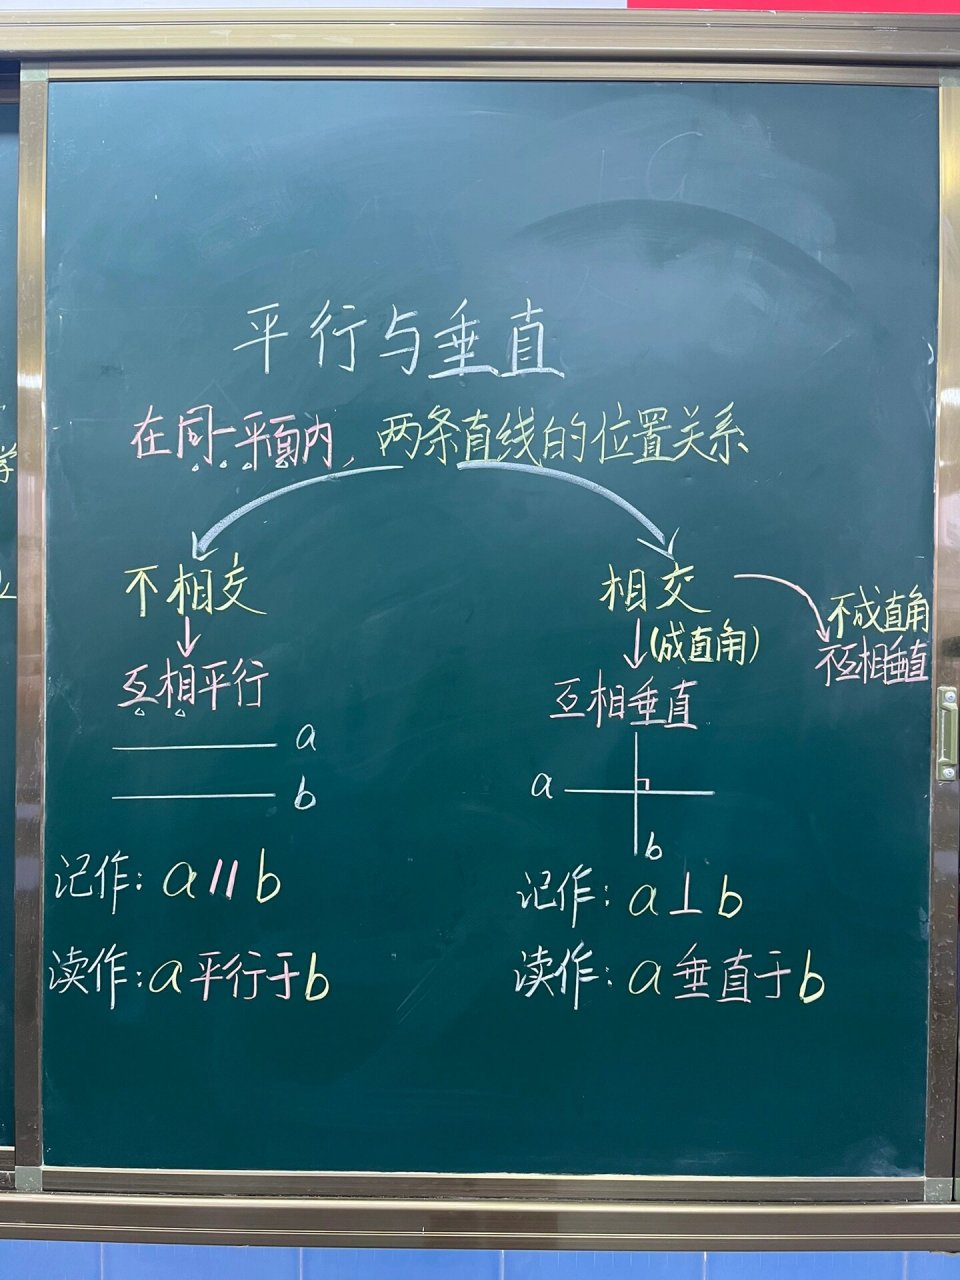 平行与垂直
在同一平面内，两条直线的位置关系
不相交
互相平行
a
b
记作：a//b
读作：a平行于b
相交
(成直角)
互相垂直
a
b
记作：a⊥b
读作：a垂直于b
不成直角
不互相垂直
学